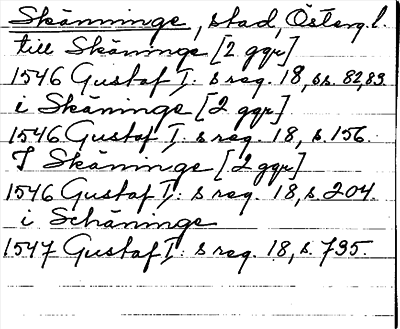 Skänninge, stad, Österg.l.
till Skäninge [2 ggr]
1546 Gustaf I: s reg. 18, ss. 82, 83.
i Skäninge [2 ggr]
1546 Gustaf I: s reg. 18, s. 156.
I Skäninge [2 ggr]
1546 Gustaf I: s reg. 18, s. 204.
i Schäninge
1547 Gustaf I: s reg. 18, s. 795.